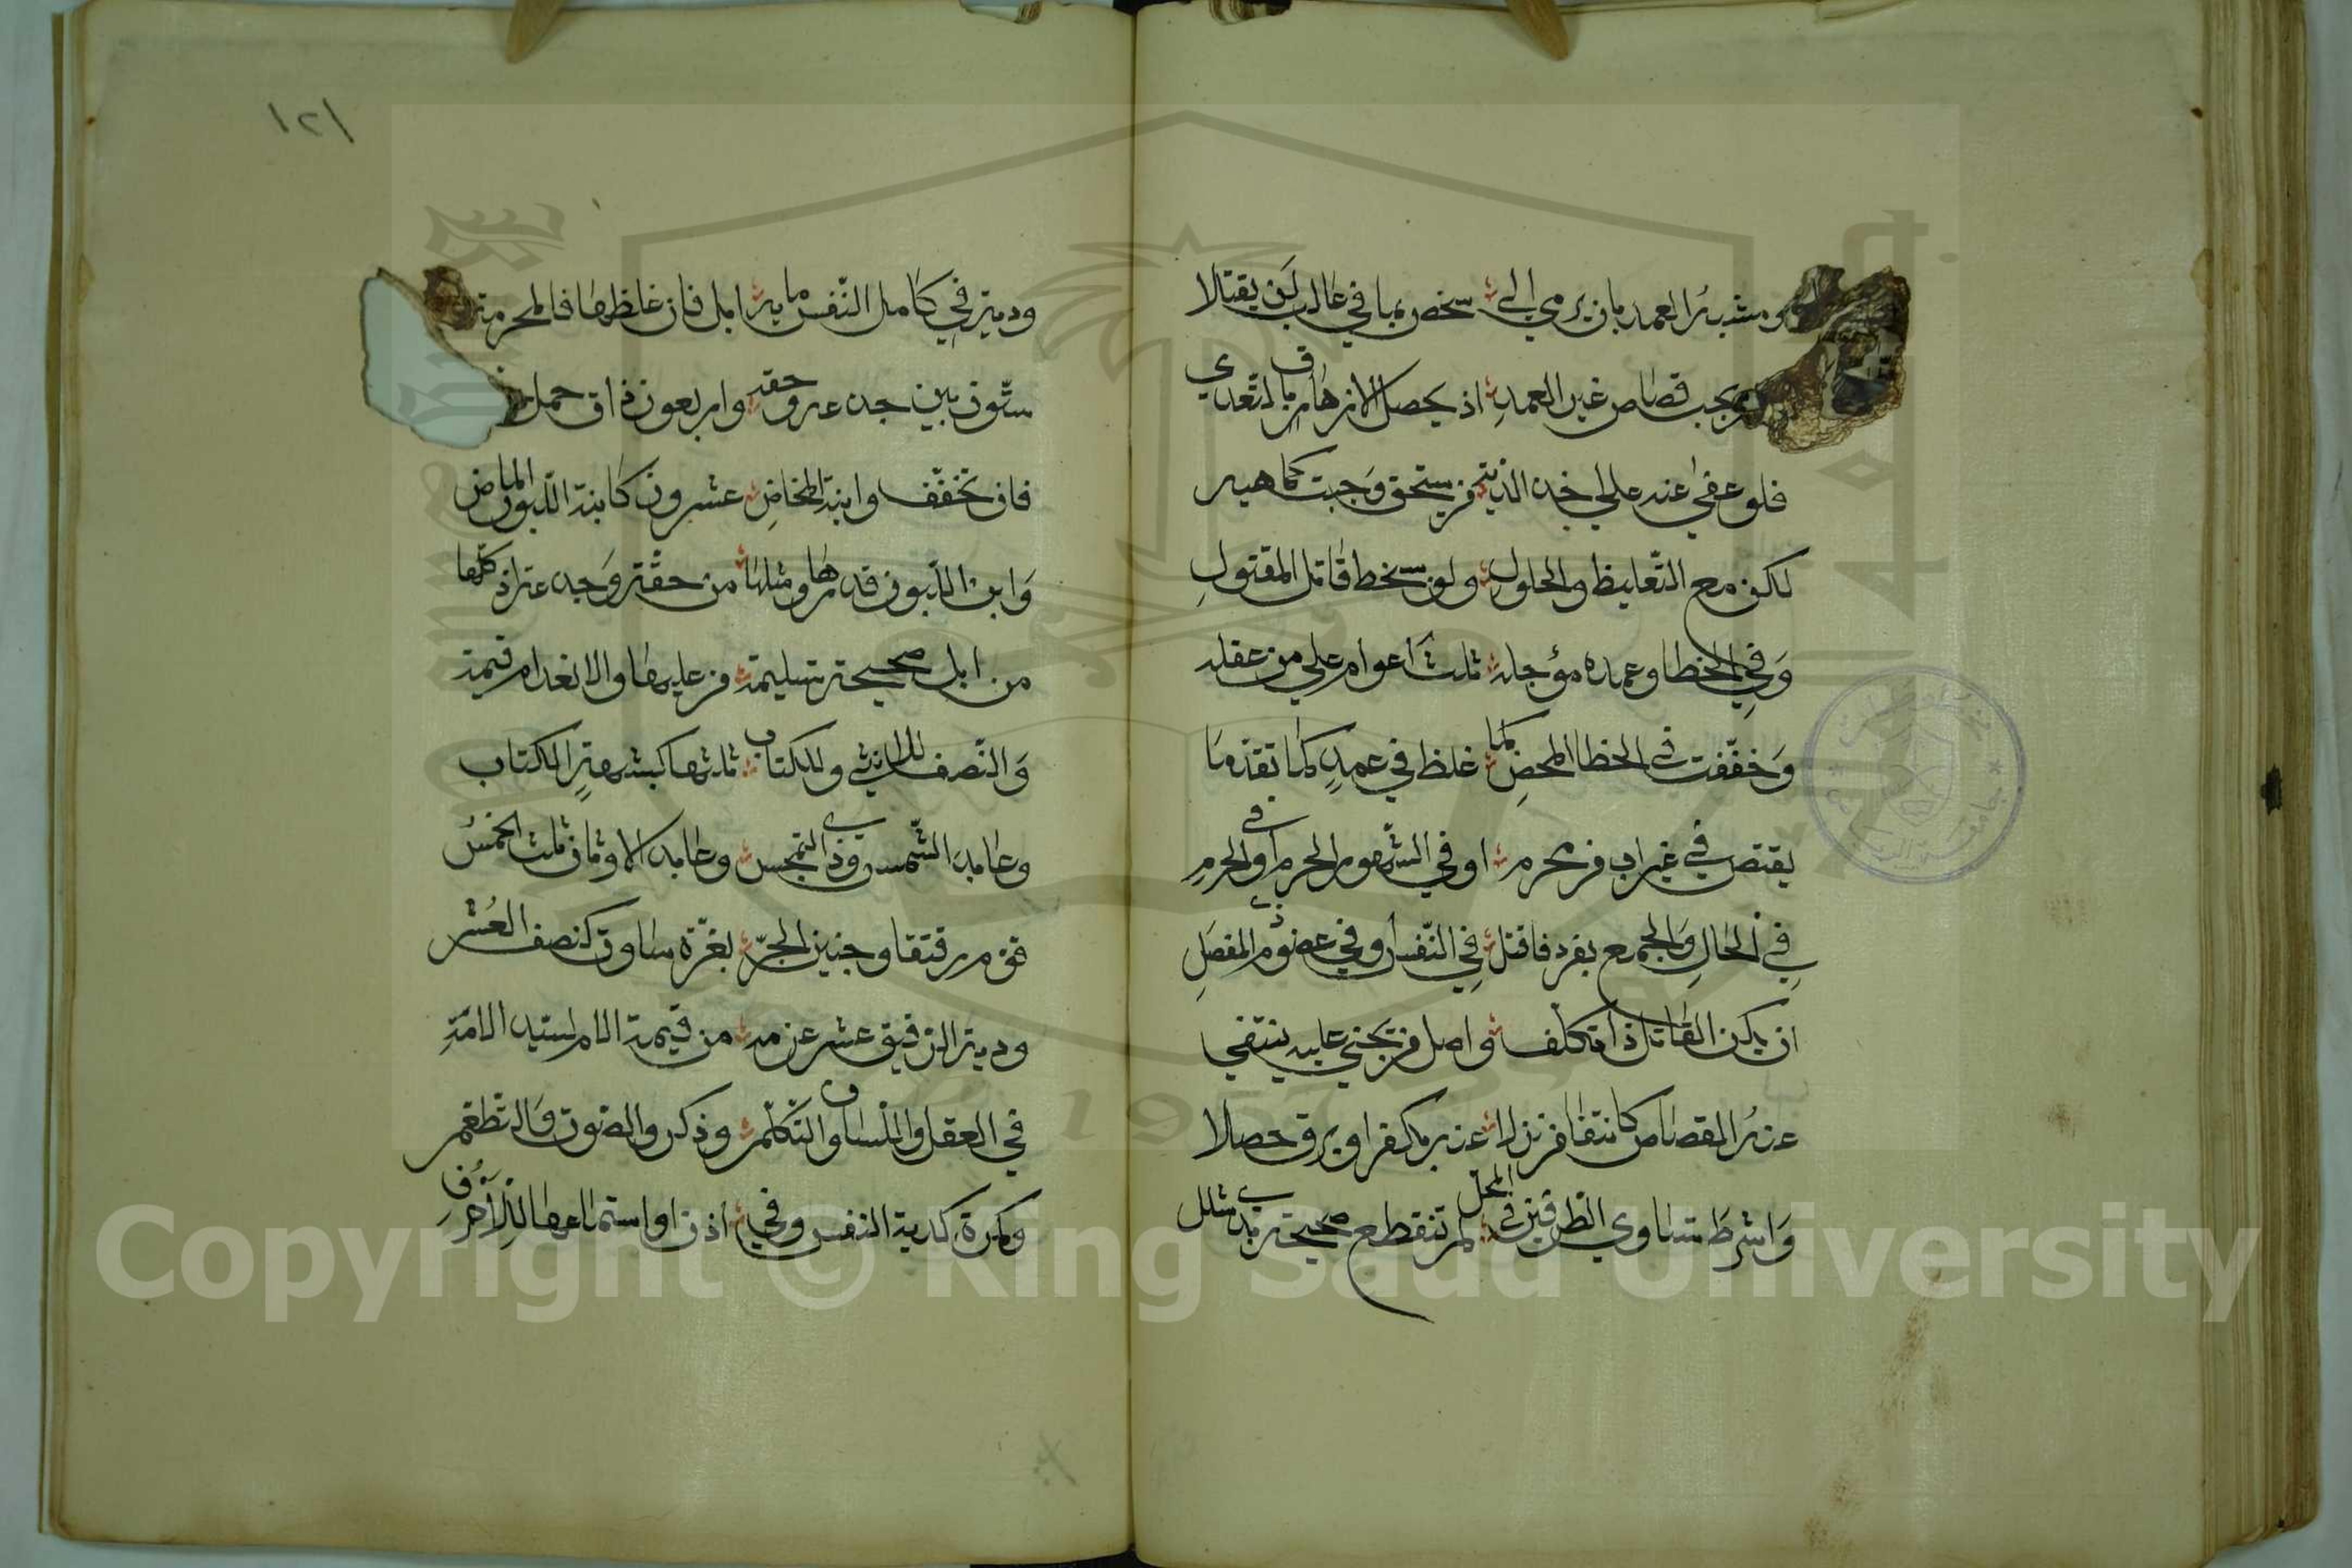 ومشبه العمد بان يرمي الى شخص بما في غالب لن يقتلا
يجب قصاص غير العمد اذ يحصل الازهاق بالتعدي
فلو عفى عنه على اخذ الديه من يستحق وجبت كما هيه
لكن مع التغليظ والحلول ولو سخط قاتل المقتول
وفي الخطا وعمده مؤجله ثلث اعوام على من عقله
وخففت في الخطا المحض كما غلظ في عمد كما تقدما
يقتص في غير اب من محرم او في الشهور الحرم او في الحرم
في الحال والجمع بفرد فاقتل في النفس او في عضو ذي المفصل
ان يكن القاتل ذا تكلف واصل من يجني عليه ينتفي
عنه القصاص كانتفا من نزلا عنه بكفر او برق حصلا
واشرط تساوي الطرفين في المحل لم تنقطع صحيحة بذي شلل
١٢١
ودية في كامل النفس مايه ابل فان غلظها فالمجزيه
ستون بين جذعة وحقه واربعون ذات حمل
فان تخفف وابنة المخاض عشرون كابنة اللبون الماض
وابن اللبون قدرها ومثلها من حقة وجذعة اذ كلها
من ابل صحيحة سليمه من عليها والانعدام قيمة
والنصف للانثى وللكتابي ثلثها كشبهة الكتاب
وعابد الشمس وذي التمجس وعابد الاوثان ثلث الخمس
قوم رقيقا وجنين الحر بغرة ساوت كنصف العشر
ودية الرقيق عشر غرمه من قيمة الام لسيد الامة
في العقل واللسان والتكلم وذكر والصوت والتطعم
وكمرة كدية النفس وفي اذن او استماعها للاحرف
Copyright © King Saud University
1957